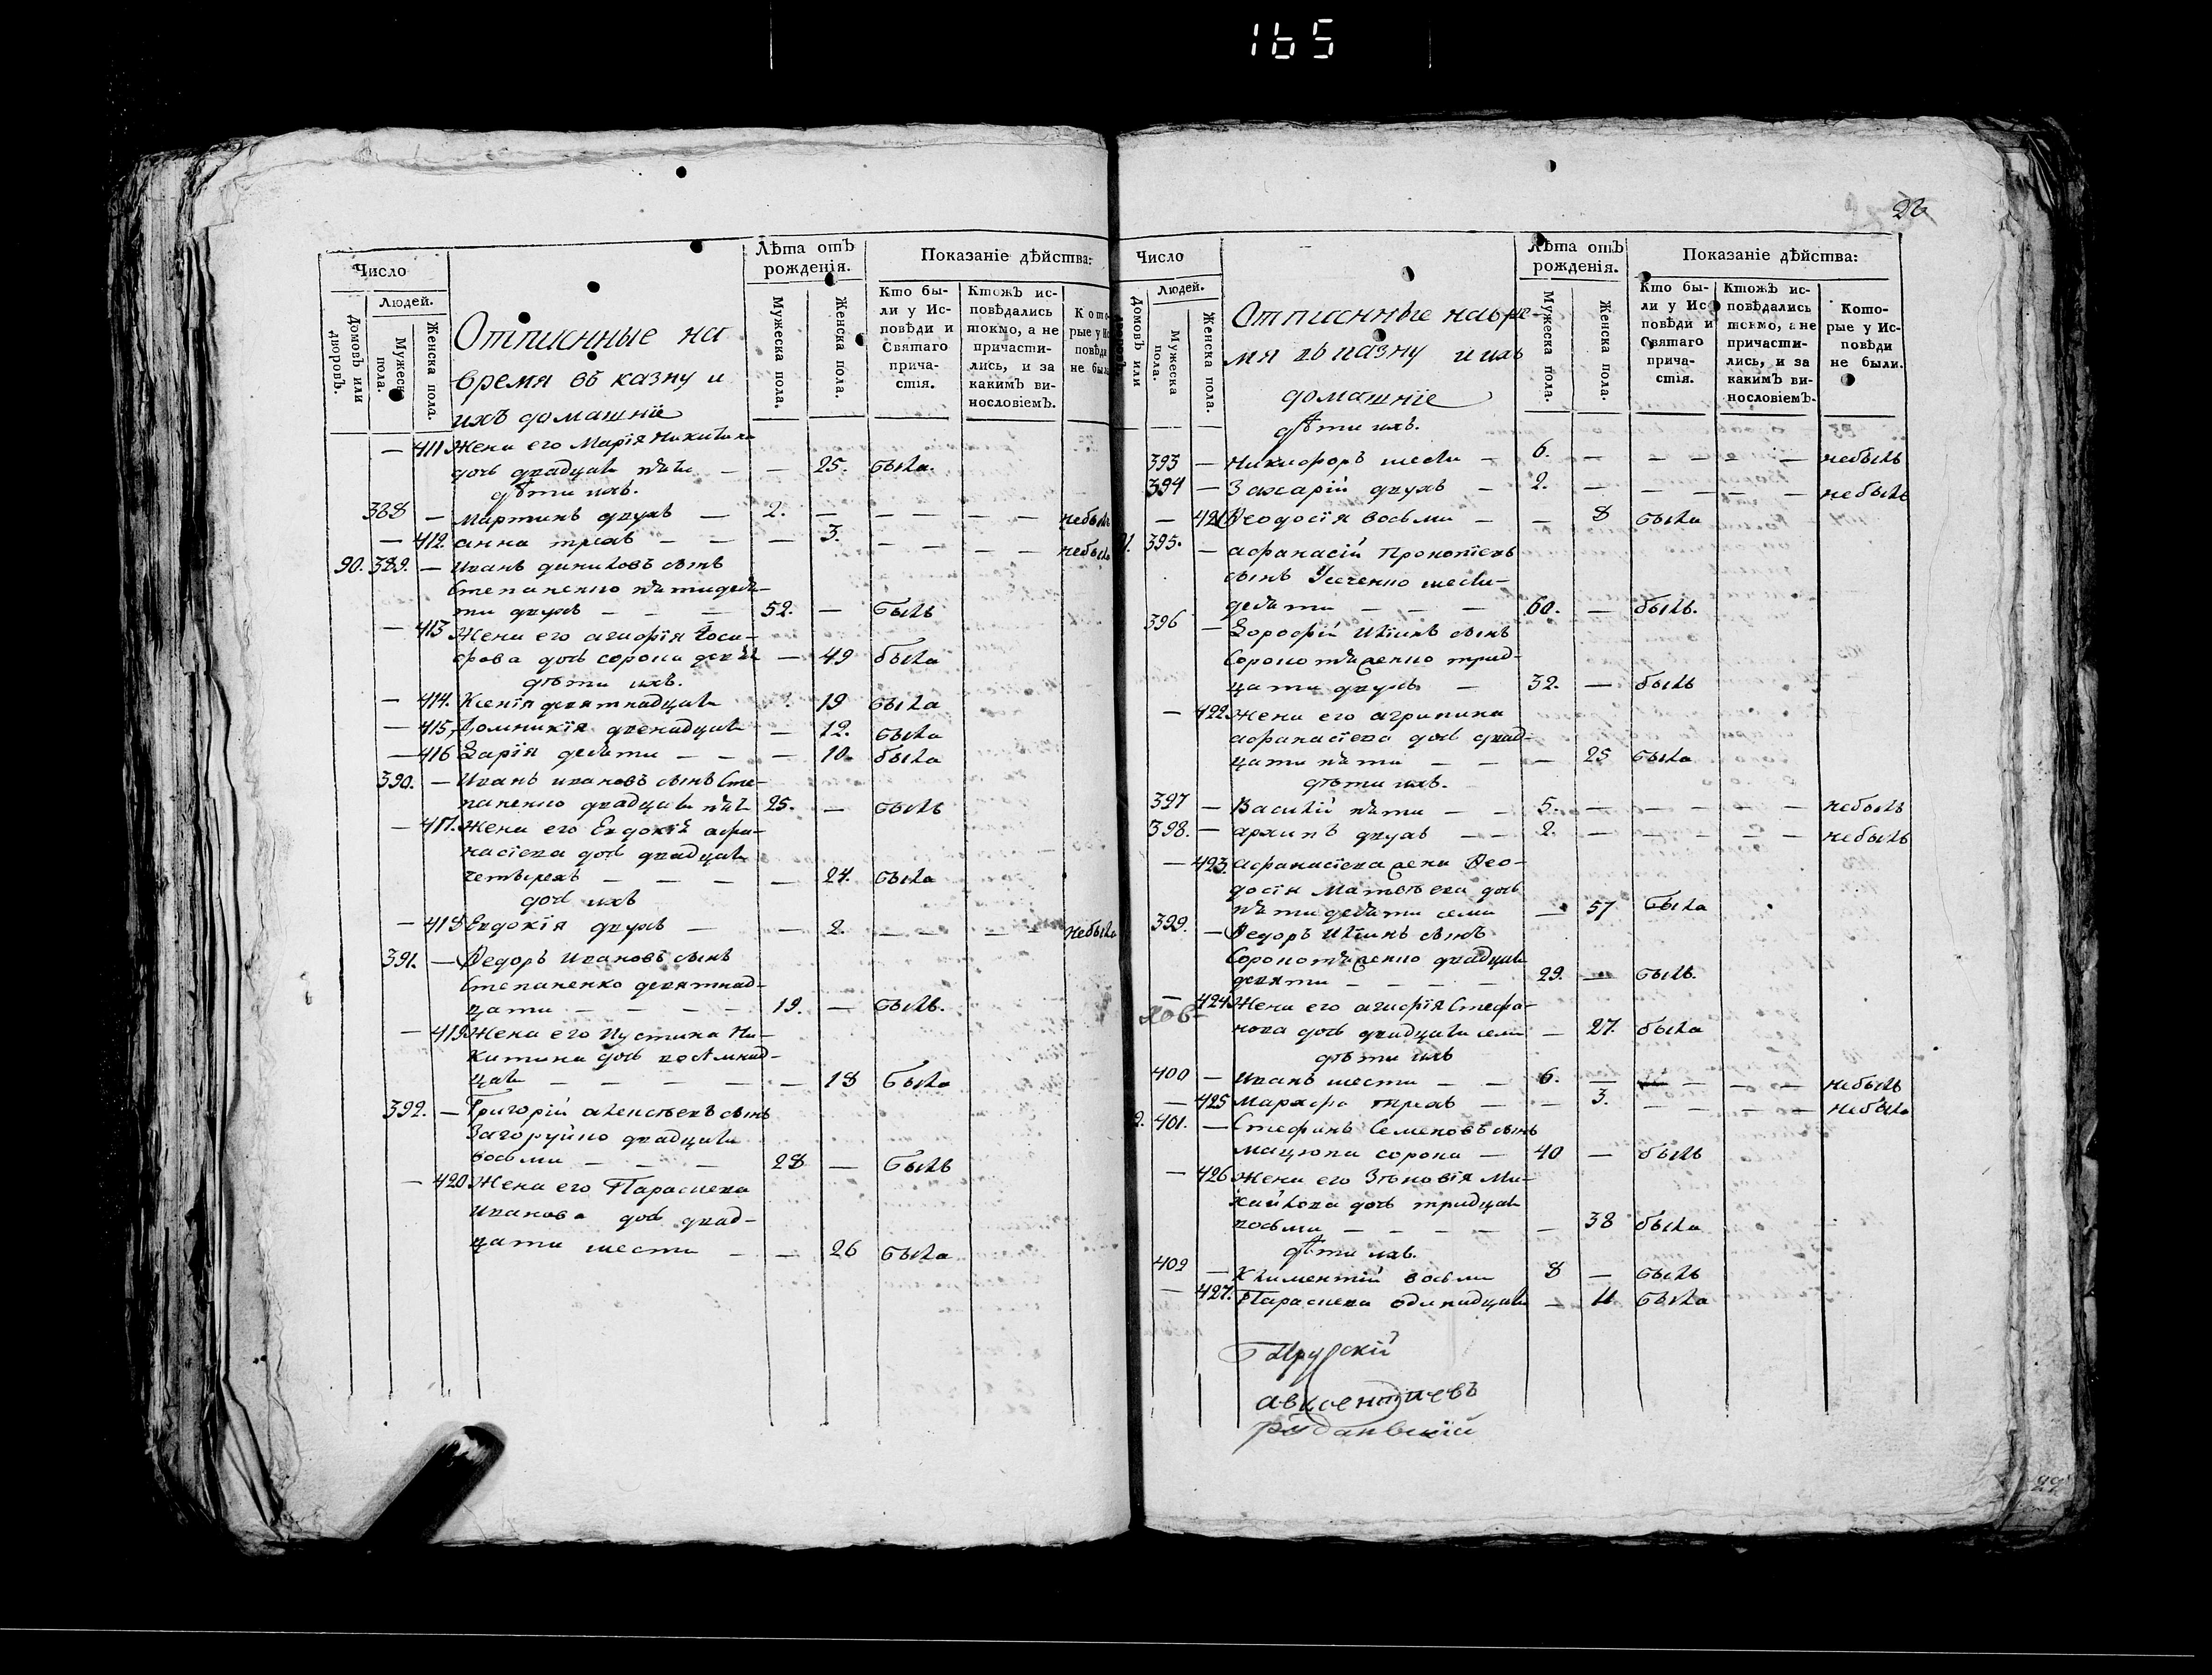 165
Число
Людей.
Домовъ или дворовъ.
Мужеска пола.
Женска пола.
Отписнные на
время въ казну и
ихъ домашніе
Лѣта отъ рожденія.
Мужеска пола.
Женска пола.
Показаніе дѣйства:
Кто бы-
ли у Ис-
повѣди и
Святаго
прича-
стія.
Ктожъ ис-
повѣдались
токмо, а не
причасти-
лись, и за
какимъ ви-
нословіемъ.
— 411 Жена его Марія Никитина
дочь двадцати пяти — — 25. была.
дѣти ихъ.
388 — Мартинъ двухъ — 2. — — — — — небылъ
— 412. анна трехъ — — — 3. — — — — небыла
90. 389. — Иванъ даниловъ сынъ
Степаненко пятидеся-
ти двухъ — — — 52. — былъ
— 413 Жена его агафія Іоси-
фова дочь сорока девяти — 49 была
дѣти ихъ.
— 414. Ксенія девятнадцати 19 была
— 415, Домникія двенадцати — 12. была
— 416 Дарія десяти — — — 10. была
390. — Иванъ ивановъ сынъ Сте-
паненко двадцати пяти 25. — былъ
— 417. Жена его Евдокія афа-
насіева дочь двадцати
четырехъ — — — — — 24. была
дочь ихъ
— 418 Евдокія двухъ — — 2. — — — — небыла
391. — Федоръ Ивановъ сынъ
Степаненко девятнад-
цати — — — — 19. — былъ.
— 419 Жена его Иустина Ни-
китина дочь восемнад-
цати — — — — — — 18 была
392. — Григорій алексѣевъ сынъ
Загоруйко двадцати
восьми — — — 28 — былъ
— 420 Жена его Параскева
иванова дочь двад-
цати шести — — 26 была
26
Число
Людей.
Домовъ или
Мужеска пола.
Женска пола.
Отписнные навре-
мя въ казну и ихъ
домашніе
дѣти ихъ.
Лѣта отъ рожденія.
Мужеска пола.
Женска пола.
Показаніе дѣйства:
Кто бы-
ли у Ис-
повѣди и
Святаго
прича-
стія.
Ктожъ ис-
повѣдались
токмо, а не
причасти-
лись, и за
какимъ ви-
нословіемъ.
Кото-
рые у Ис-
повѣди
не были.
393 — Никифоръ шести — 6. — — — — — небылъ
394 — Захарій двухъ — 2. — — — — — небылъ
— 421 Феодосія восьми — — 8 была
395. — афанасій Прокопіевъ
сынъ Усченко шести-
десяти — — — 60. — былъ.
396 — Дорофій Иліинъ сынъ
Соропотяженко трид-
цати двухъ — 32. — былъ
— 422 Жена его агрипина
афанасіева дочь двад-
цати пяти — — — 25 была
дѣти ихъ.
397 — Василій пяти — — 5. — — — — — небылъ
398. — архипъ двухъ — — 2. — — — — — небылъ
— 423. афанасіева жена Фео-
досія Матвѣева дочь
пятидесяти семи — 57 была
399. — Федоръ Иліинъ сынъ
Соропотяженко двадцати
девяти — — — — 29. — былъ.
— 424 Жена его агафія Стефа-
нова дочь двадцати семи — 27. была
дѣти ихъ
400 — Иванъ шести — — 6. — — — — небылъ
— 425 Марѳфа трехъ — — 3. — — — — небыла
2. 401. — Стефанъ Семеновъ сынъ
мацюпа сорока — 40 — былъ
— 426 Жена его Зѣновія Ми-
хайлова дочь тридцати
восьми — — — — — 38 была
дѣти ихъ.
402 — Климентій восьми 8 — былъ
— 427. Параскева одинадцати — 11 была
авксентиевъ